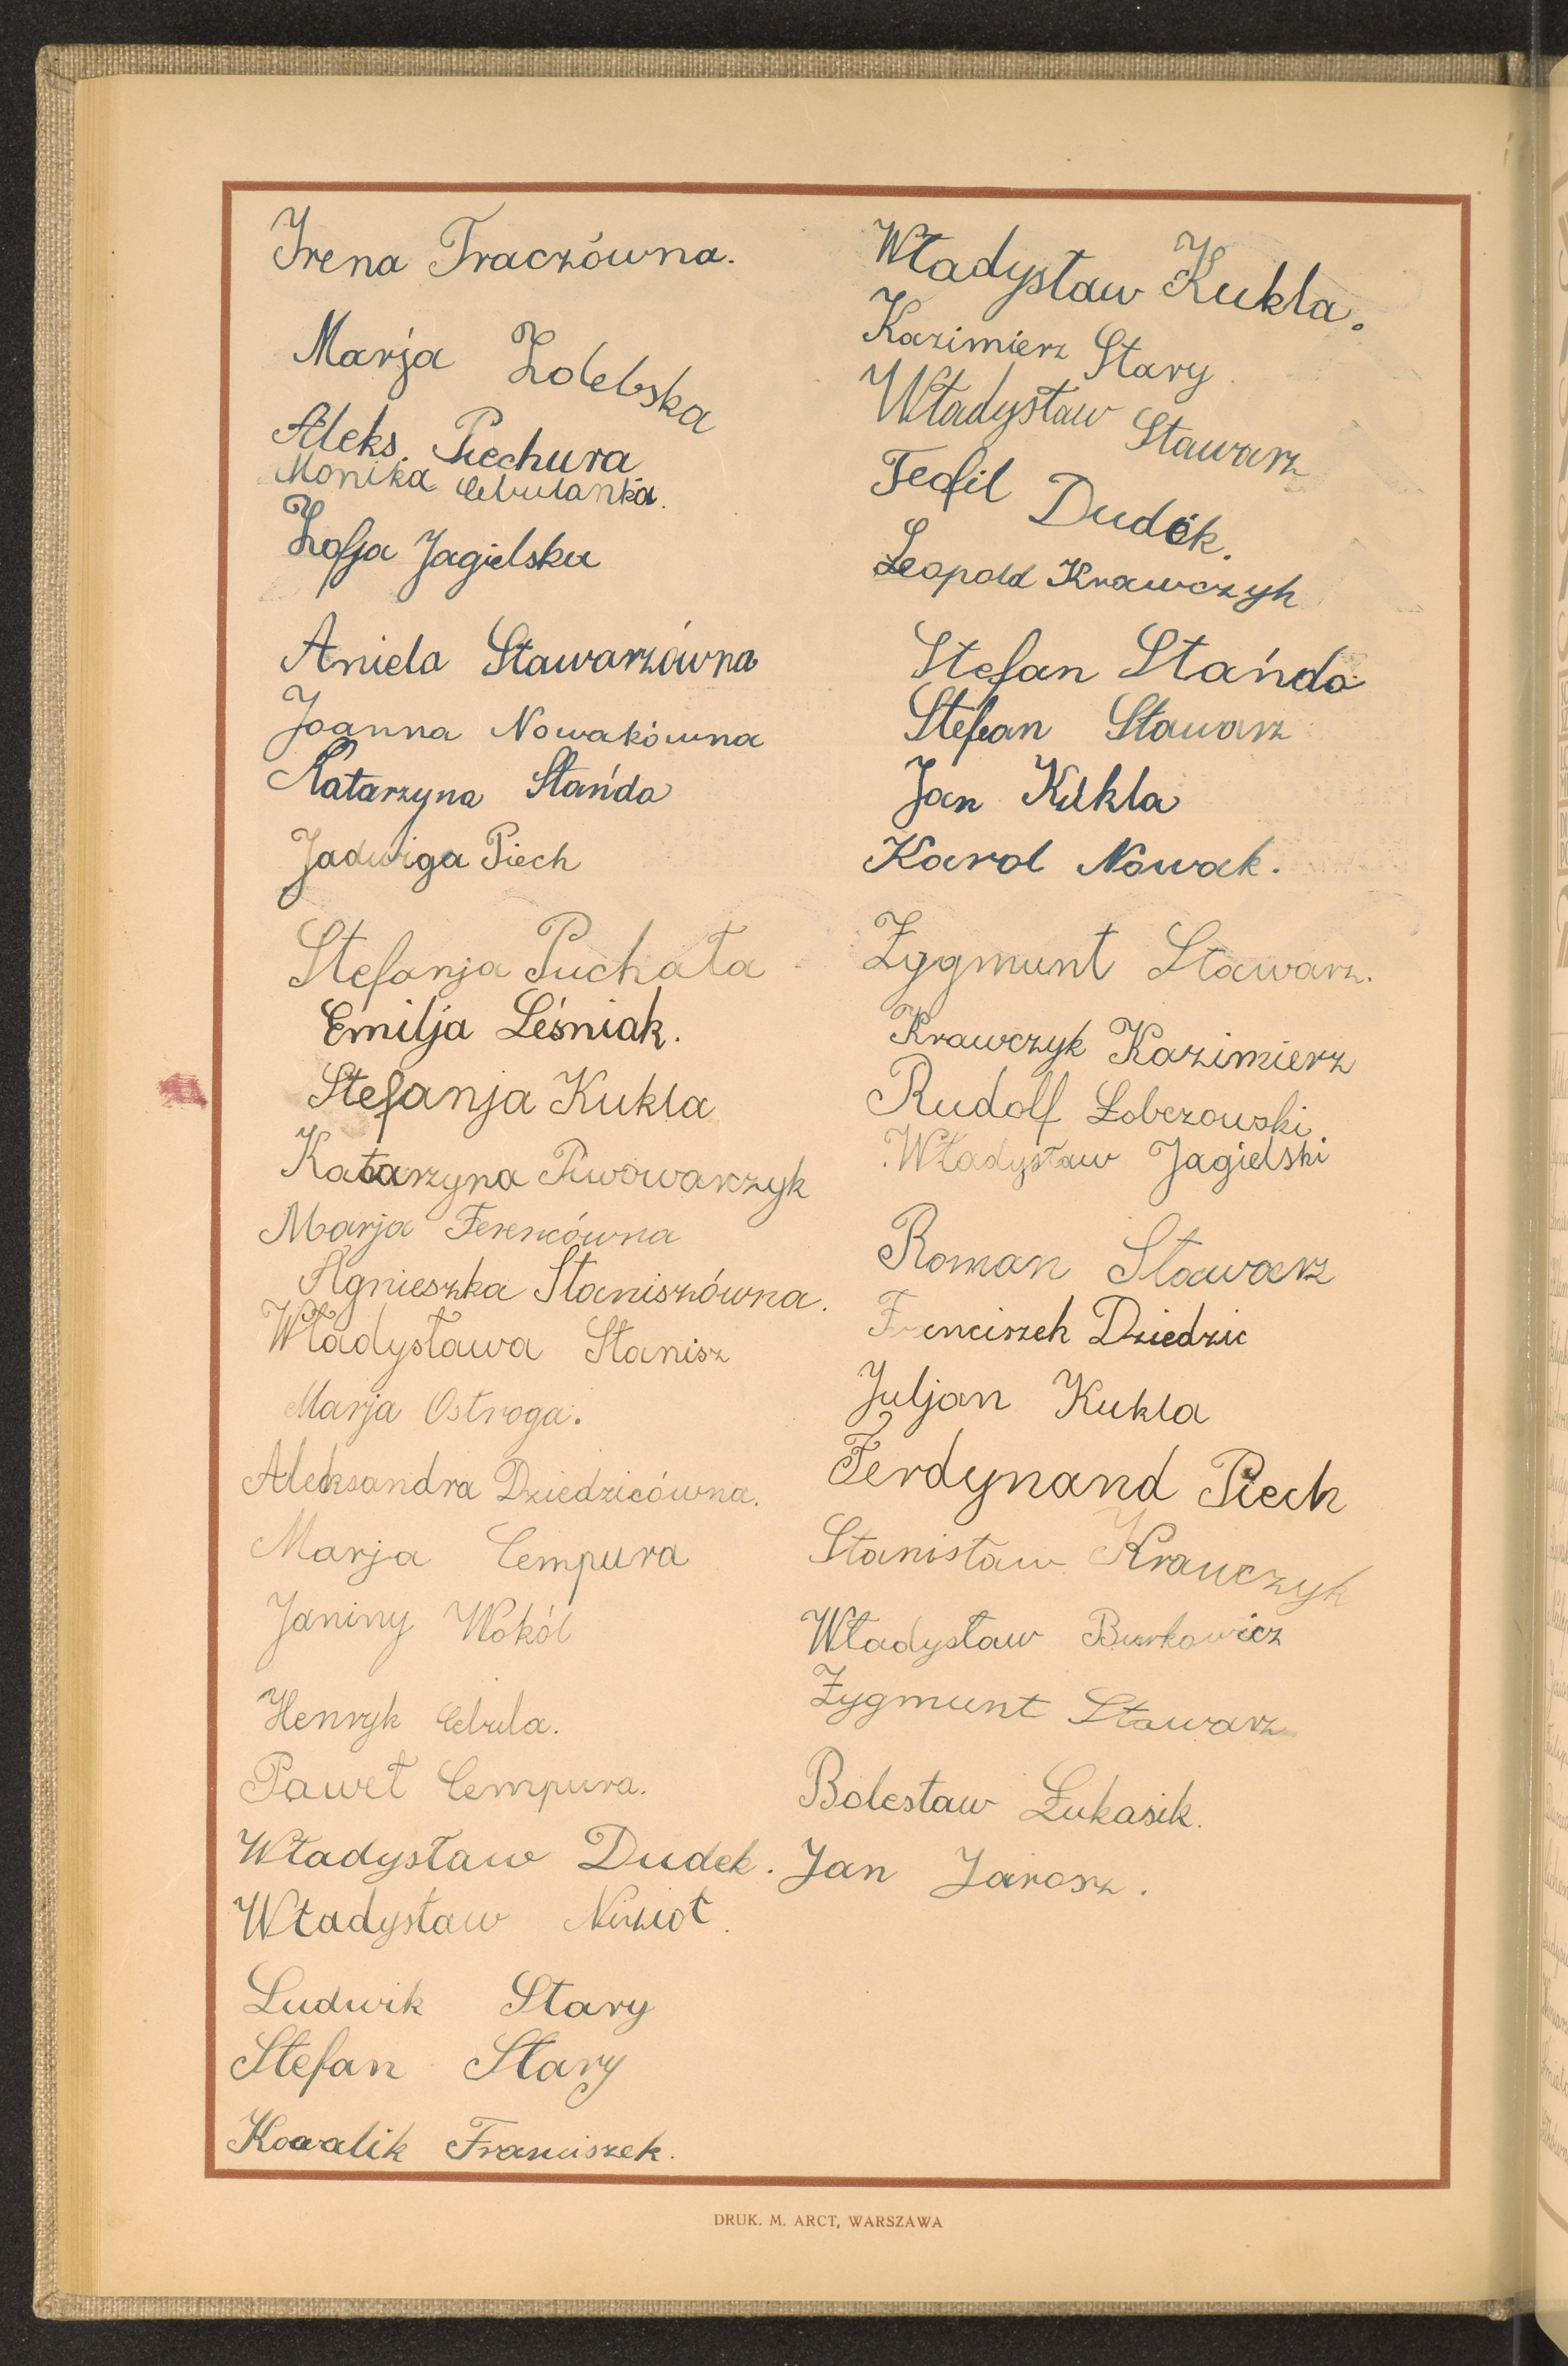 Irena Traczówna.
Marja Zolebska
Aleks. Piechura
Monika Cebulanka.
Zofja Jagielska
Aniela Stawarzówna
Joanna Nowakówna
Katarzyna Stańdo
Jadwiga Piech
Stefanja Puchała
Emilja Leśniak.
Stefanja Kukla
Katarzyna Piwowarczyk
Marja Ferencówna
Agnieszka Staniszówna.
Władysława Stanisz
Marja Ostroga.
Aleksandra Dziedzicówna.
Marja Cempura
Janiny Wokól
Henryk Cebula.
Paweł Cempura.
Władysław Dudek.
Władysław
Ludwik Stary
Stefan Stary
Kowalik Franciszek.
Władysław Kukla.
Kazimierz Stary
Władysław Stawarz
Teofil Dudek.
Leopold Krawczyk
Stefan Stańdo
Stefan Stawarz
Jan Kukla
Karol Nowak.
Zygmunt Stawarz.
Krawczyk Kazimierz
Rudolf Łobczowski
Władysław Jagielski
Roman Stawarz
Franciszek Dziedzic
Juljan Kukla
Ferdynand Piech
Stanisław Krawczyk
Władysław Burkowicz
Zygmunt Stawarz
Bolesław Łukasik.
Jan Jarosz.
DRUK. M. ARCT, WARSZAWA